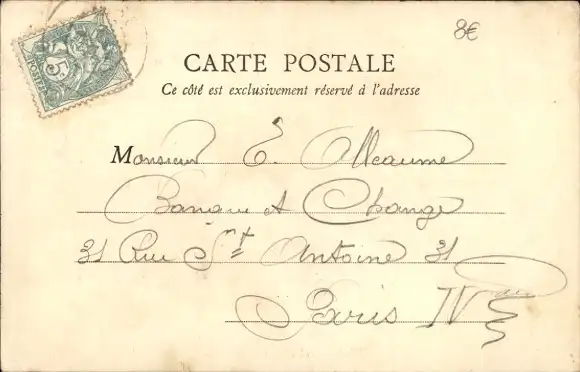 8€
5
POSTES
CARTE POSTALE
Ce côté est exclusivement réservé à l'adresse
Monsieur E. Alleaume
Banque et Change
31 Rue St Antoine 31
Paris IV